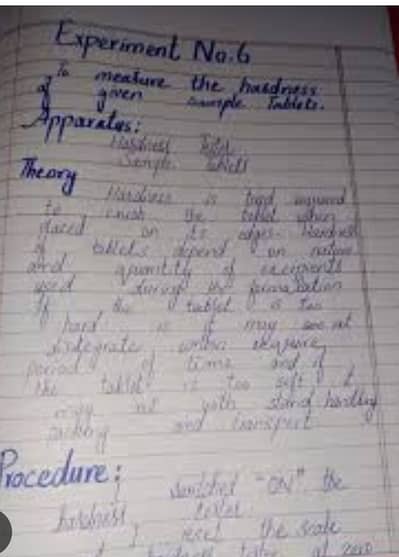 Experiment No.6
To measure the hardness
of given sample Tablets.
Apparatus:
Hardness Tester
Sample Tablets
Theory
Hardness is required
to crush the tablet when
placed on its edges. Hardness
of tablets depend on nature
and quantity of excipients
used during the formulation
If the tablet is too
hard it may not
disintegrate
period of time and if
the tablet is too soft it
may not stand handling
and transport
Procedure:
I switched "ON" the
hardness tester
I reset the scale
hardness tester zero